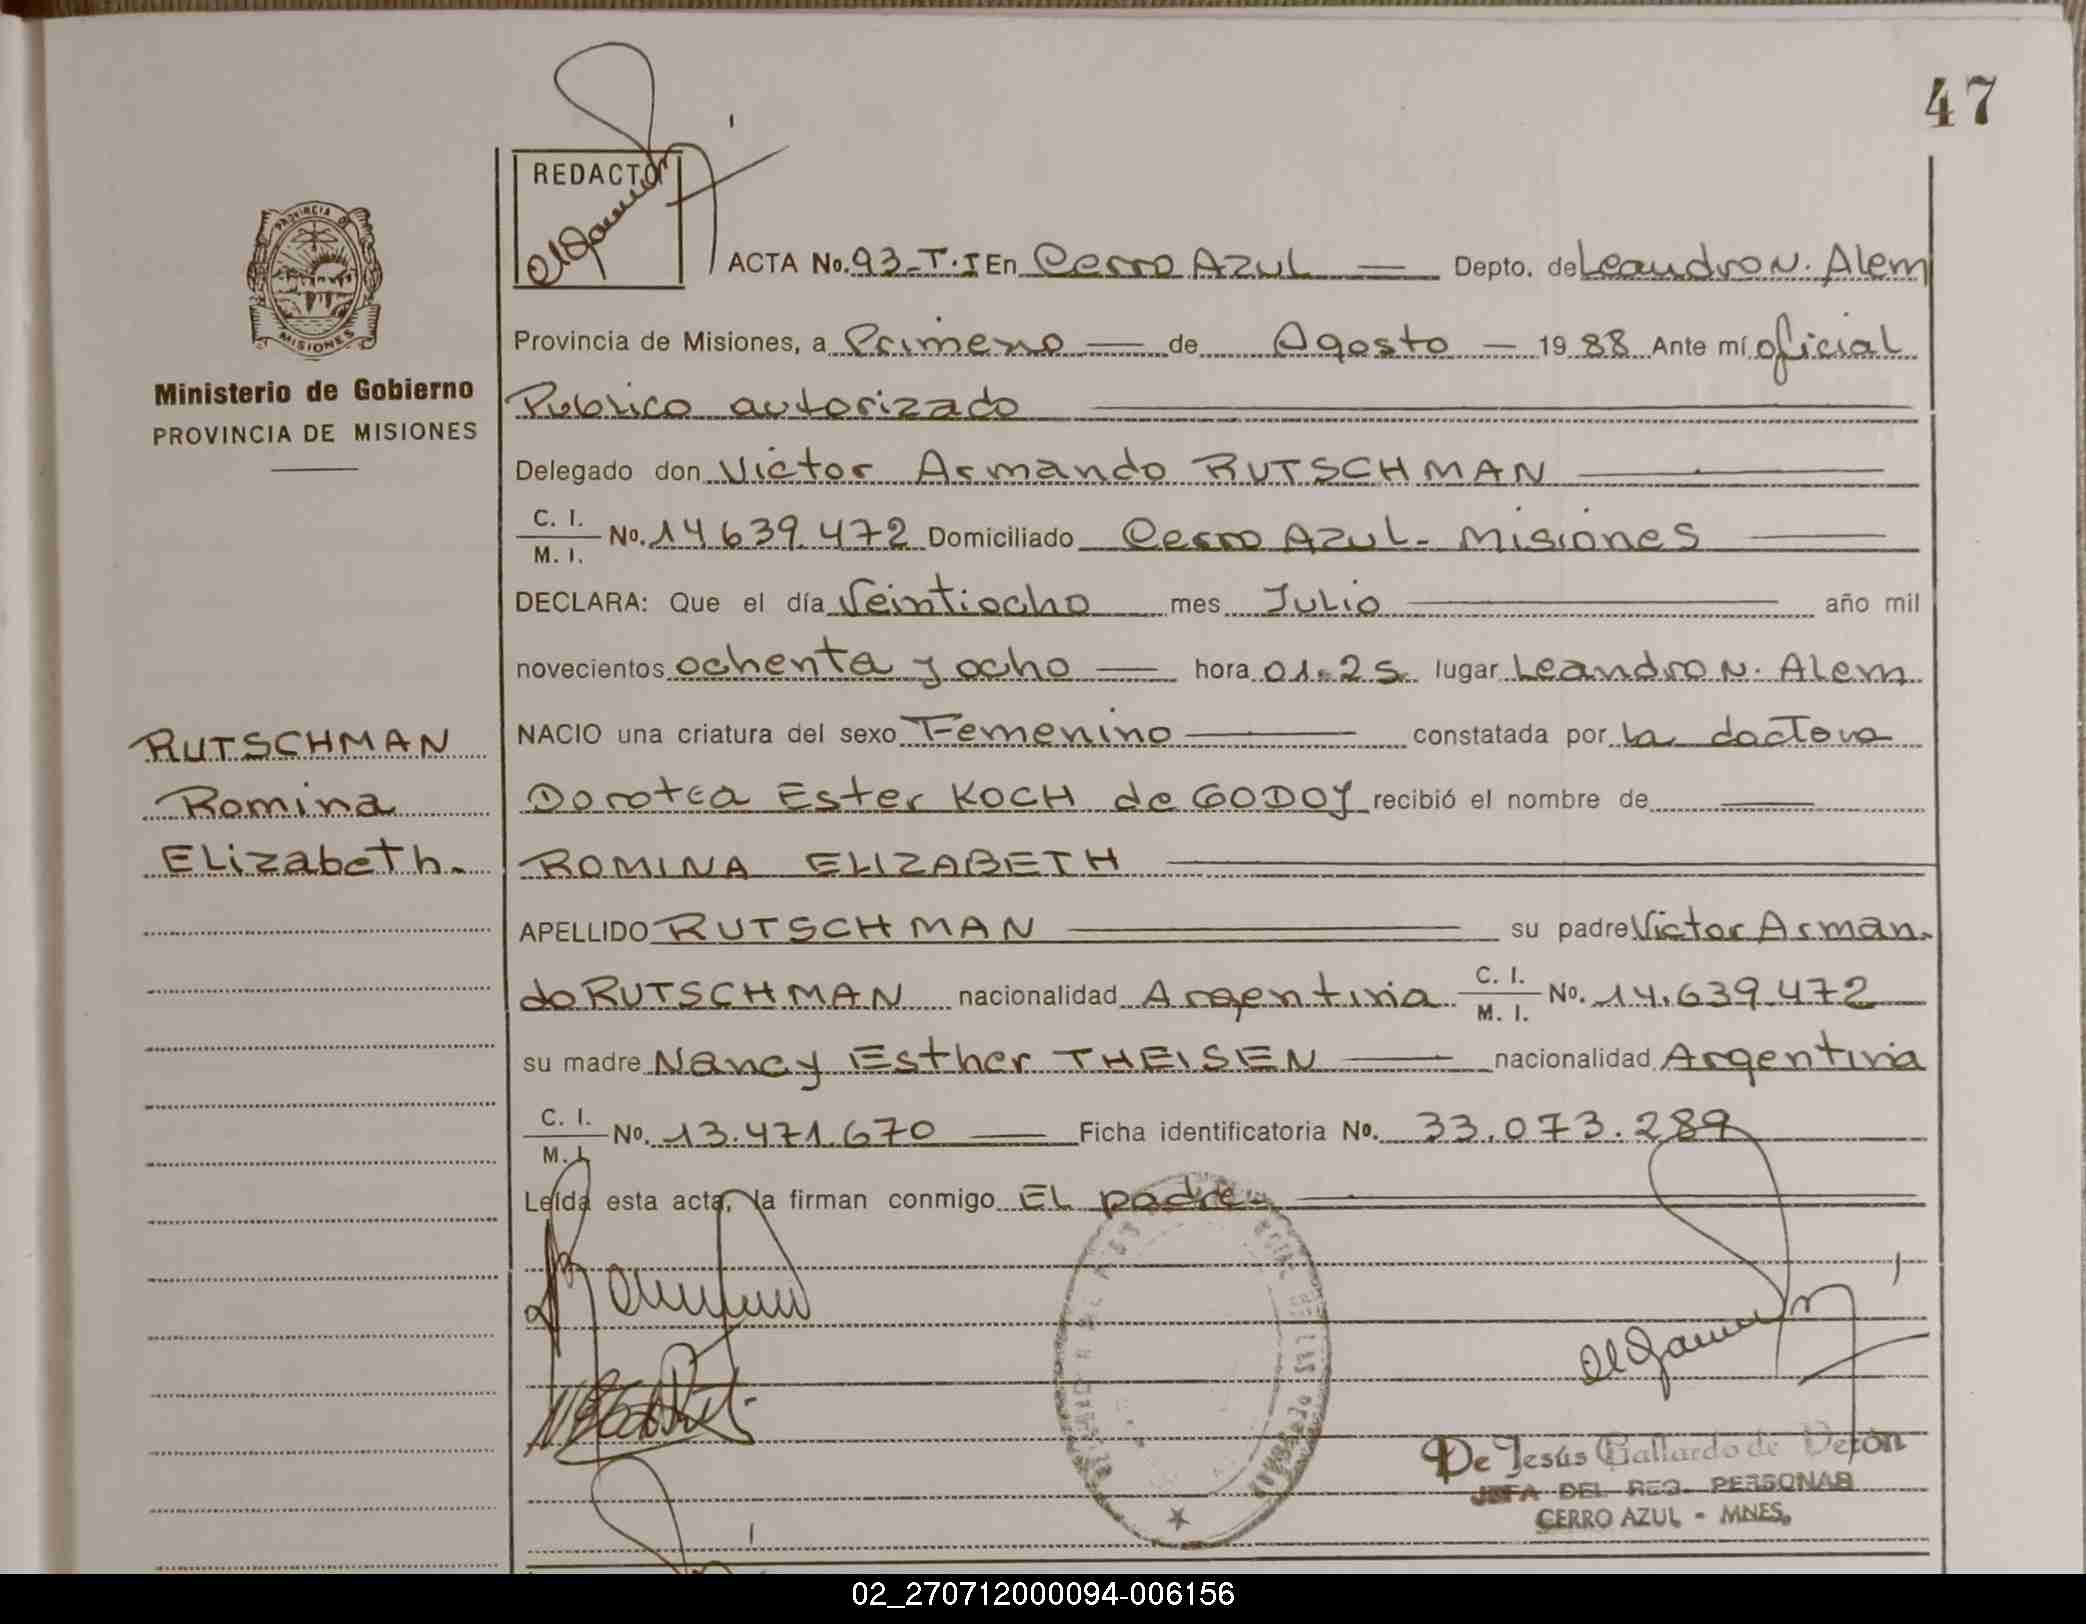 47
REDACTO
ACTA No. 93-T.I En Cerro Azul Depto. de Leandro N. Alem
PROVINCIA DE
MISIONES
Ministerio de Gobierno
PROVINCIA DE MISIONES
Provincia de Misiones, a Primero de Agosto 19 88 Ante mí oficial
Publico autorizado
Delegado don Victor Armando RUTSCHMAN
C. I.
M. I. No. 14 639.472 Domiciliado Cerro Azul - Misiones
DECLARA: Que el día Veintiocho mes Julio año mil
novecientos ochenta y ocho hora 01.25 lugar Leandro N. Alem
NACIO una criatura del sexo Femenino constatada por la doctora
Dorotea Ester KOCH de GODOY recibió el nombre de
ROMINA ELIZABETH
APELLIDO RUTSCHMAN su padre Victor Arman-
do RUTSCHMAN nacionalidad Argentina C. I.
M. I. No. 14.639.472
su madre Nancy Esther THEISEN nacionalidad Argentina
C. I.
M. I. No. 13.471.670 Ficha identificatoria No. 33.073.289
Leída esta acta, la firman conmigo EL padre.
RUTSCHMAN
Romina
Elizabeth.
De Jesús Gallardo de Verón
JEFA DEL REG. PERSONAS
CERRO AZUL - MNES.
02_270712000094-006156